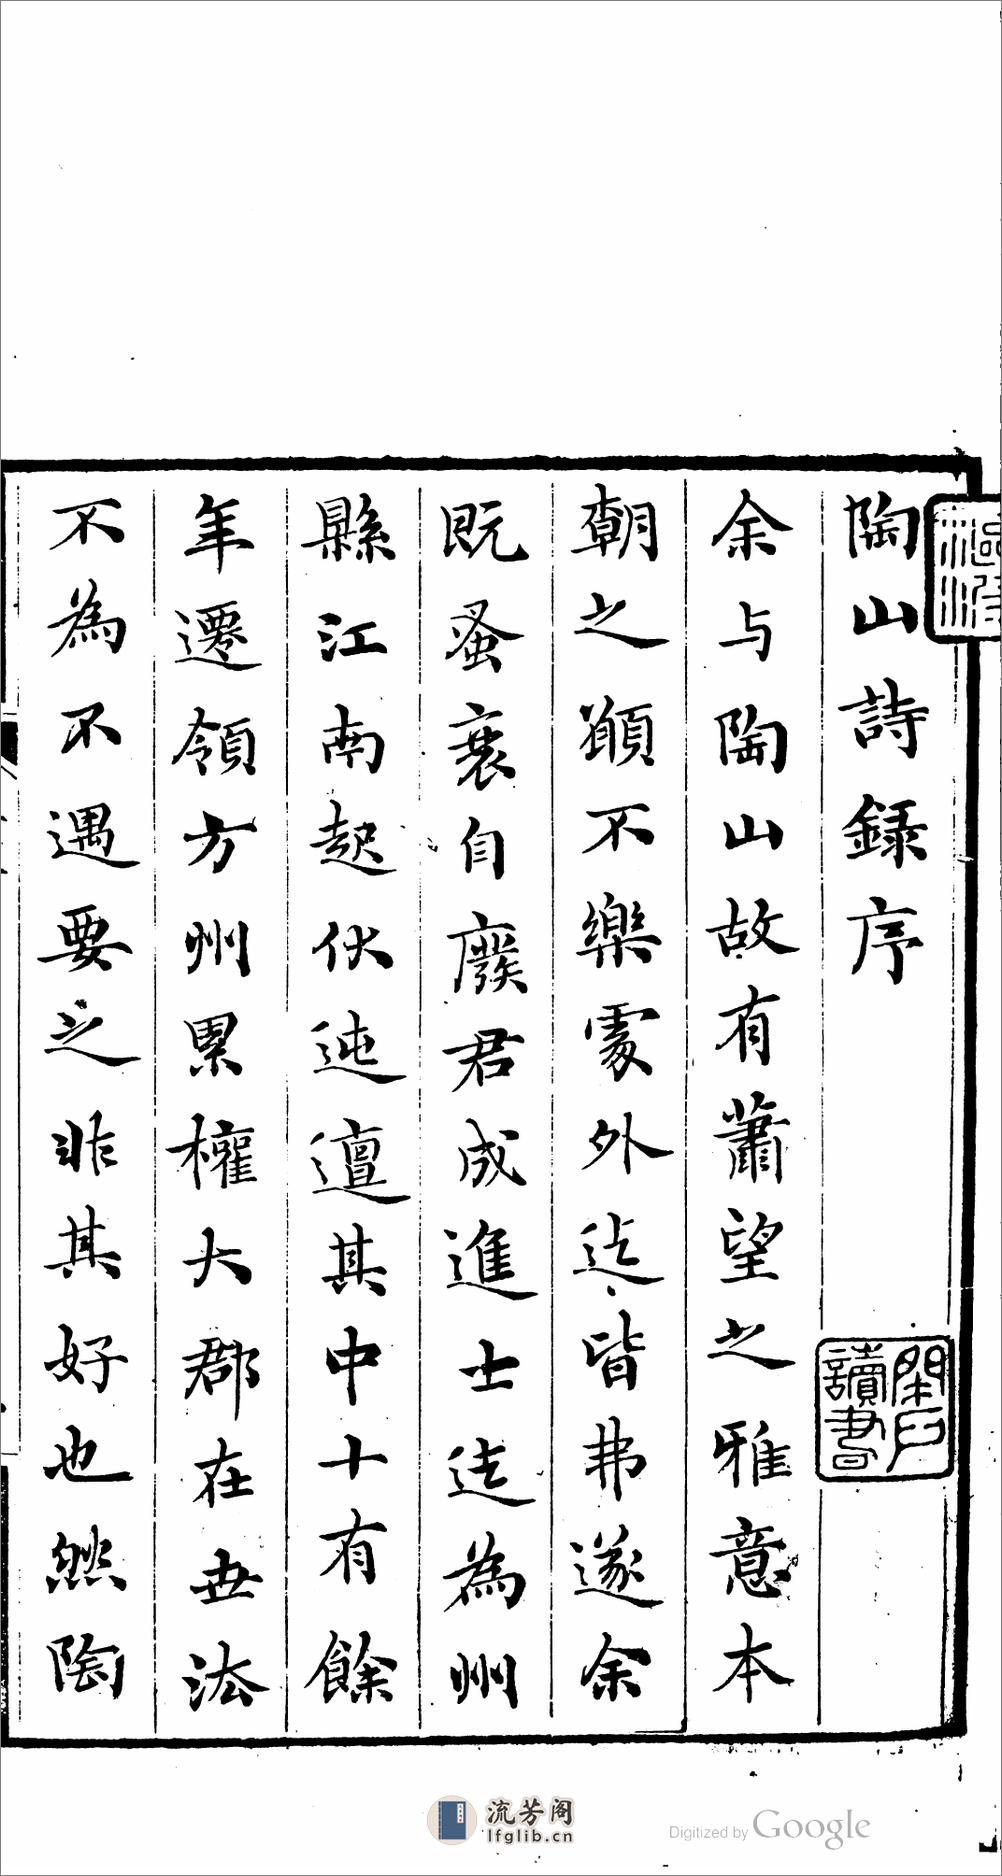 陶山詩録序
余与陶山故有蕭望之雅意本
朝之願不樂處外迄皆弗遂余
既蚤衰自廢君成進士迄為州
縣江南起伏迍邅其中十有餘
年遷領方州累權大郡在世法
不為不遇要之非其好也然陶
閉戶讀書
流芳阁
lfglib.cn
Digitized by Google